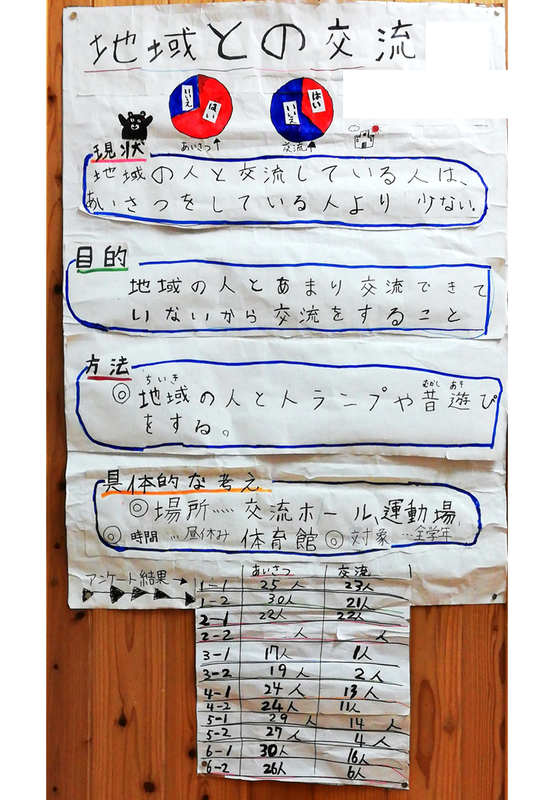 地域との交流
いいえ はい
いいえ はい
あいさつ↑ 交流↑
現状
地域の人と交流している人は、
あいさつをしている人より少ない。
目的
地域の人とあまり交流できて
いないから交流をすること
方法
ちいき むかし あそ
◎地域の人と人ランプや昔遊び
をする。
具体的な考え
◎場所…… 交流ホール、運動場、
◎時間 …昼休み 体育館 ◎対象 …全学年
アンケート結果→ あいさつ 交流
1-1 25人 23人
1-2 30人 21人
2-1 22人 22人
2-2 人 人
3-1 17人 1人
3-2 19人 2人
4-1 24人 13人
4-2 24人 11人
5-1 29人 14人
5-2 27人 4人
6-1 30人 16人
6-2 26人 6人